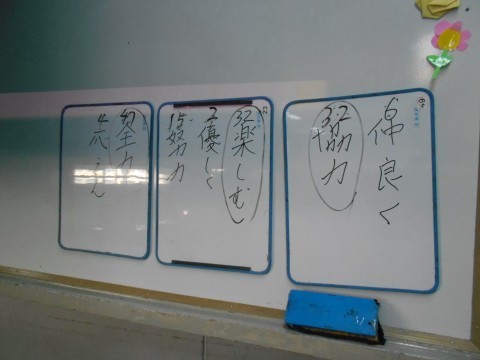 仲良く
32協力
32楽しむ
2優しく
15努力
全力
4応えん